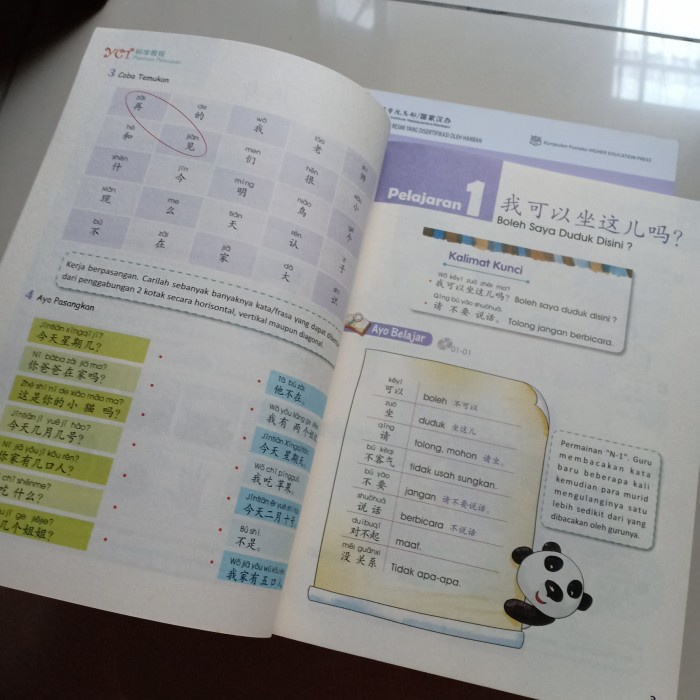 YCT 标准教程
3 Coba Temukan
zài
再
de
的
wǒ
我
lǎo
老
hé
和
jiàn
见
men
们
hěn
很
shén
什
jīn
今
míng
明
niǎo
鸟
小
xiàn
现
me
么
tiān
天
rèn
认
个
bù
不
zài
在
jiā
家
dà
大
子
识
Kerja berpasangan. Carilah sebanyak banyaknya kata/frasa yang dapat
dari penggabungan 2 kotak secara horisontal, vertikal maupun diagonal.
4 Ayo Pasangkan
Jīntiān xīngqī jǐ?
今天星期几?
Nǐ bàba zài jiā ma?
你爸爸在家吗?
Zhè shì nǐ de xiǎo māo ma?
这是你的小 猫 吗?
Jīntiān jǐ yuè jǐ hào?
今天几月几号?
Nǐ jiā yǒu jǐ kǒu rén?
你家有几口人?
chī shénme?
吃 什么?
几个姐姐?
Tā bú zài.
他不在。
我有 两个
今天 星期天
Wǒ chī píngguǒ.
我吃苹果。
今天二月十
Bú shì.
不是。
我家有五口人
国家汉办
RESMI YANG DISERTIFIKASI OLEH HANBAN
HIGHER EDUCATION PRESS
Pelajaran 1
我可以坐这儿吗?
Boleh Saya Duduk Disini ?
Kalimat Kunci
Wǒ kěyǐ zuò zhèr ma?
我可以坐这儿吗? Boleh saya duduk disini ?
Qǐng bú yào shuōhuà.
请 不要 说话。 Tolong jangan berbicara.
Ayo Belajar
01-01
kěyǐ
可以 boleh 不可以
zuò
坐 duduk 坐这儿
qǐng
请 tolong, mohon 请坐。
bú kèqi
不客气 tidak usah sungkan.
bú yào
不 要 jangan 请不要说话。
shuōhuà
说 话 berbicara 不说话
duìbuqǐ
对不起 maaf.
méi guānxi
没 关系 Tidak apa-apa.
Permainan "N-1". Guru
membacakan kata
baru beberapa kali
kemudian para murid
mengulanginya satu
lebih sedikit dari yang
dibacakan oleh gurunya.